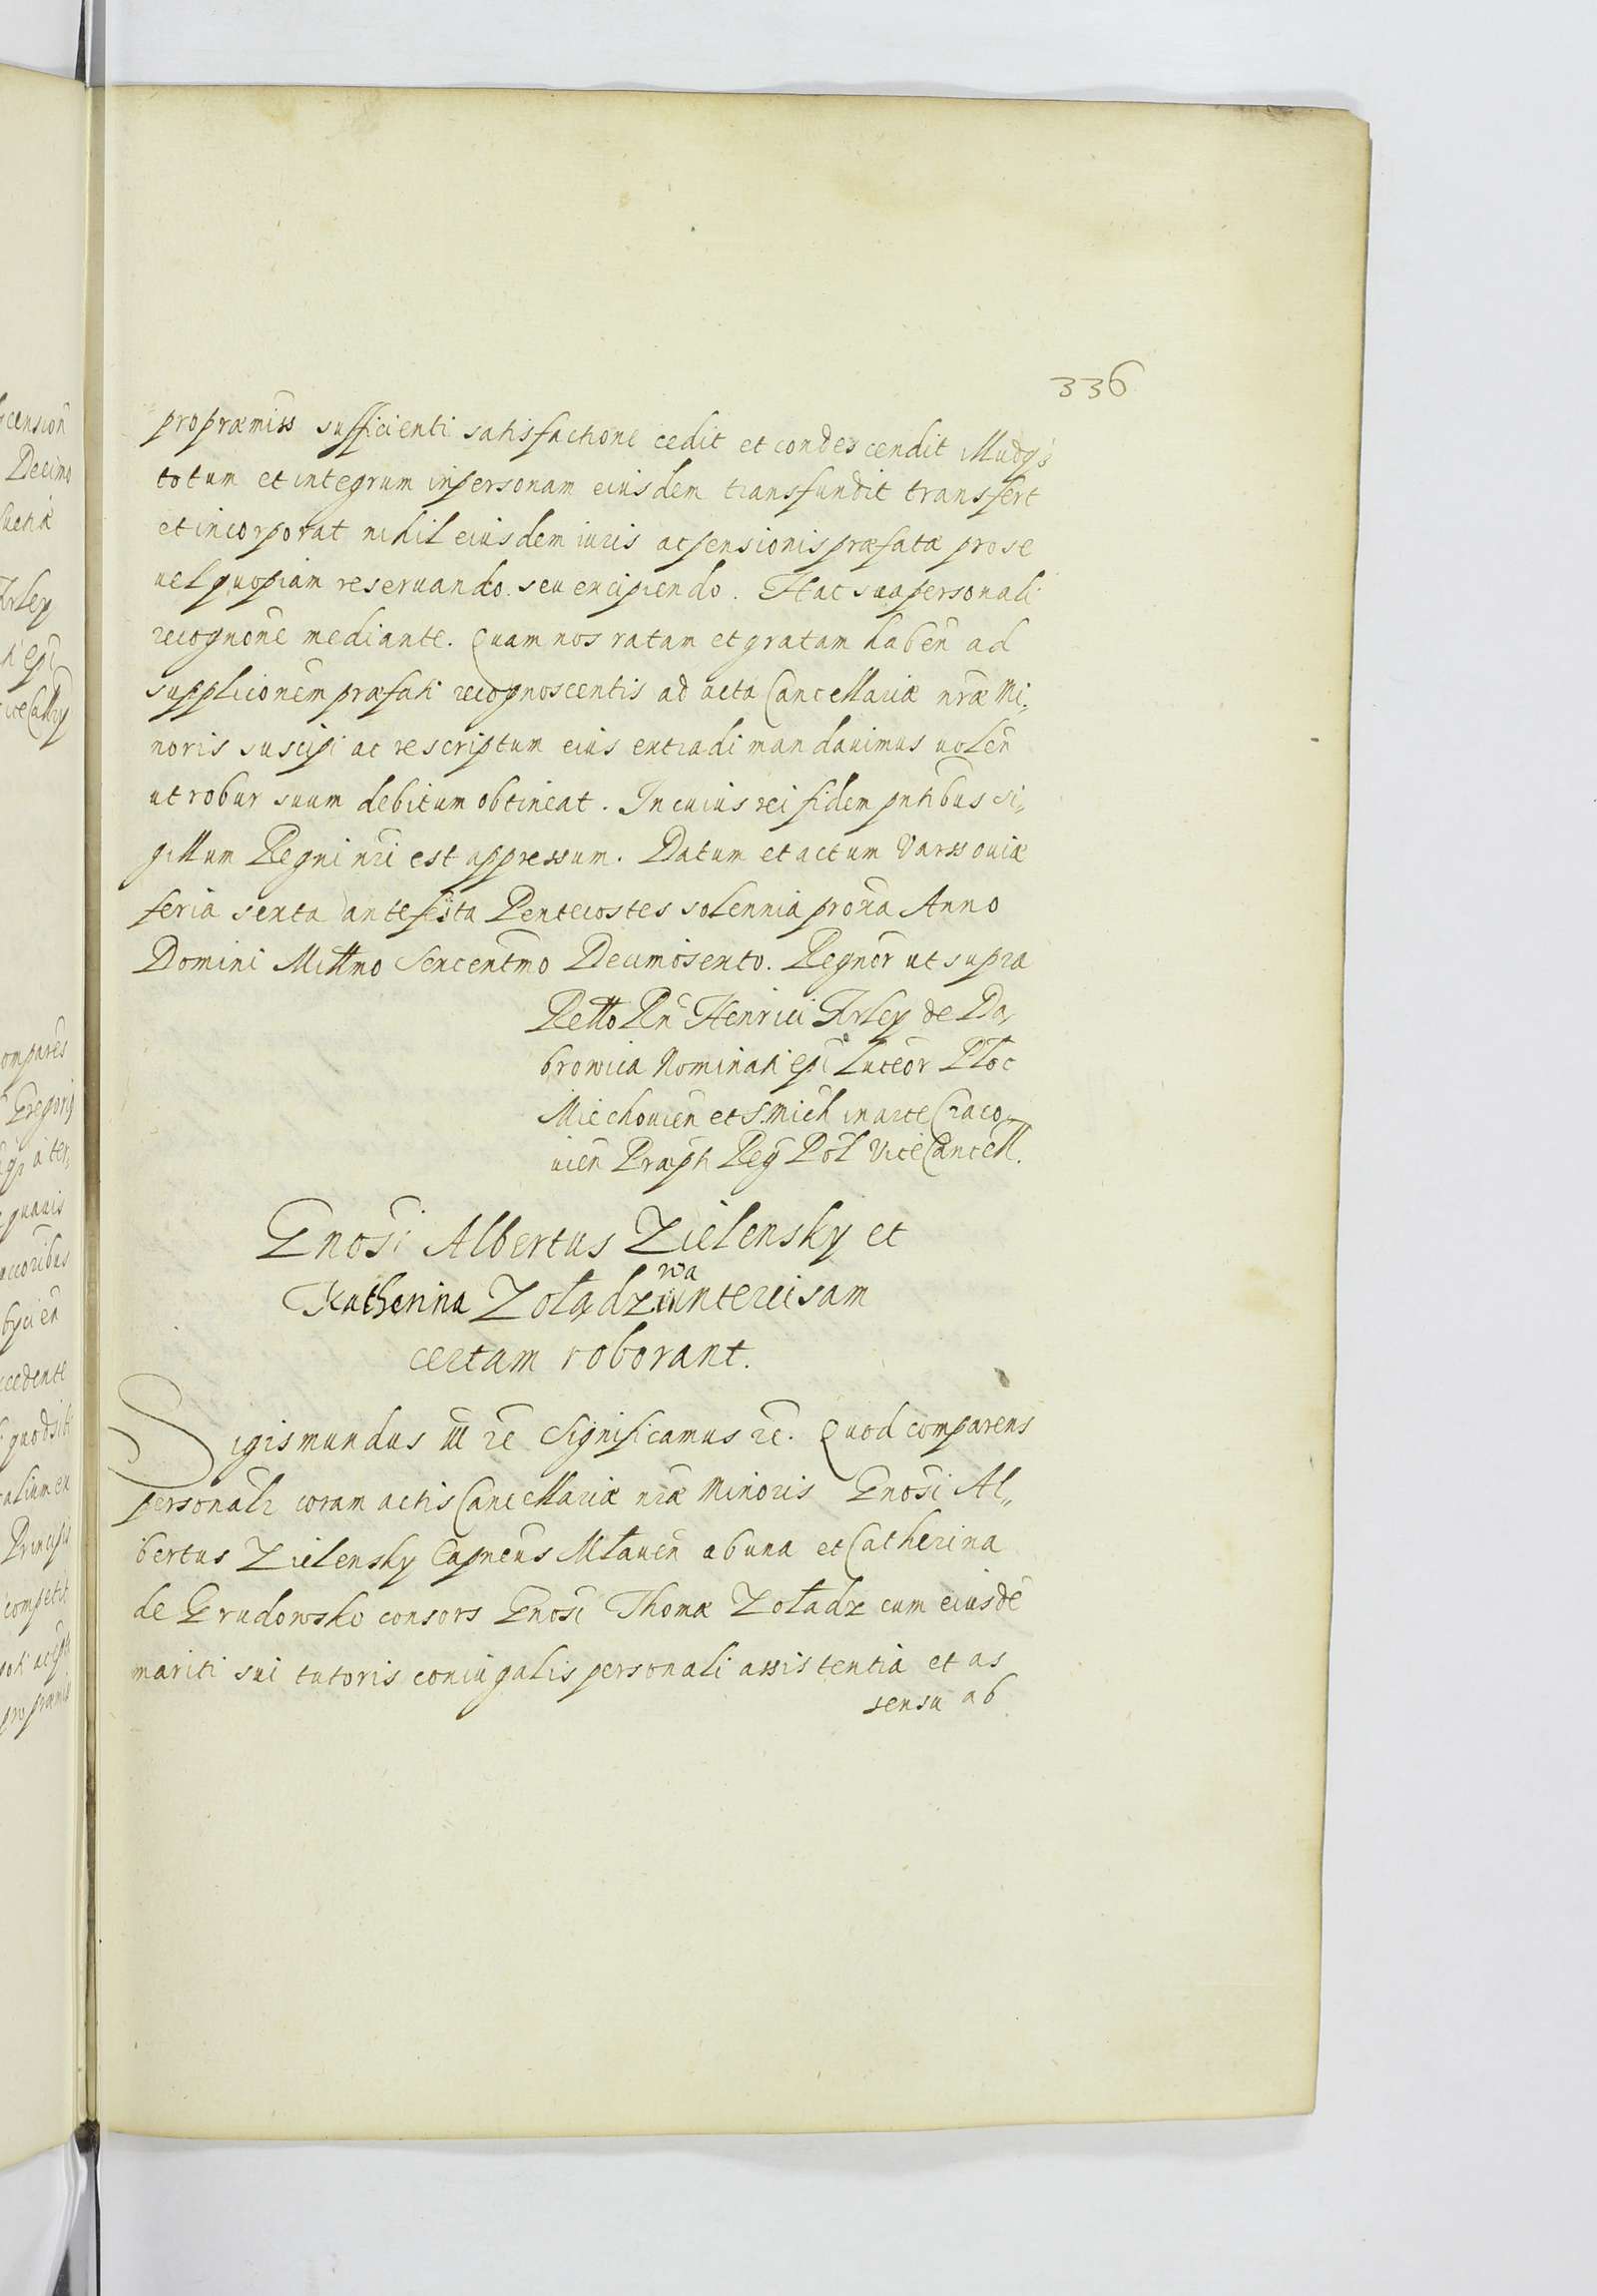 336
pro præmiss sufficienti satisfactione cedit et condescendit illudq3
totum et integrum in personam eiusdem transfundit transfert
et incorporat nihil eiusdem iuris ac pensionis præfatæ pro se
uel quopiam reseruando seu excipiendo. Hac sua personali
recognone mediante. Quam nos ratam et gratam haben ad
supplicionem præfati recognoscentis ad acta Cancellariæ nræ Mi„
noris suscipi ac rescriptum eius extradi mandauimus uolen
ut robur suum debitum obtineat. In cuius rei fidem pntibus si„
gillum Regni nri est appressum. Datum et actum Varssouiæ
feria sexta ante festa Pentecostes solennia proxa Anno
Domini Millmo Sexcentmo Decimosexto. Regnor ut supra
Retto Rn Henrici Firley de Da„
browica Nominati epi Luceor Ploc
Miechouien et S. Mich in arce Craco„
uien Præpti Reg Pol ViceCancell.
Gnosi Albertus Zielensky et
Katherina Zoładzwa intercisam
certam roborant.
Sigismundus III etc Significamus etc. Quod comparens
personalr coram actis Cancellariæ nræ Minoris Gnosi Al„
bertus Zielensky Capneus Mlauen ab una et Catherina
de Grudowsko consors Gnosi Thomæ Zoładz cum eiusde
mariti sui tutoris coniugalis personali assistentia et as
sensu ab